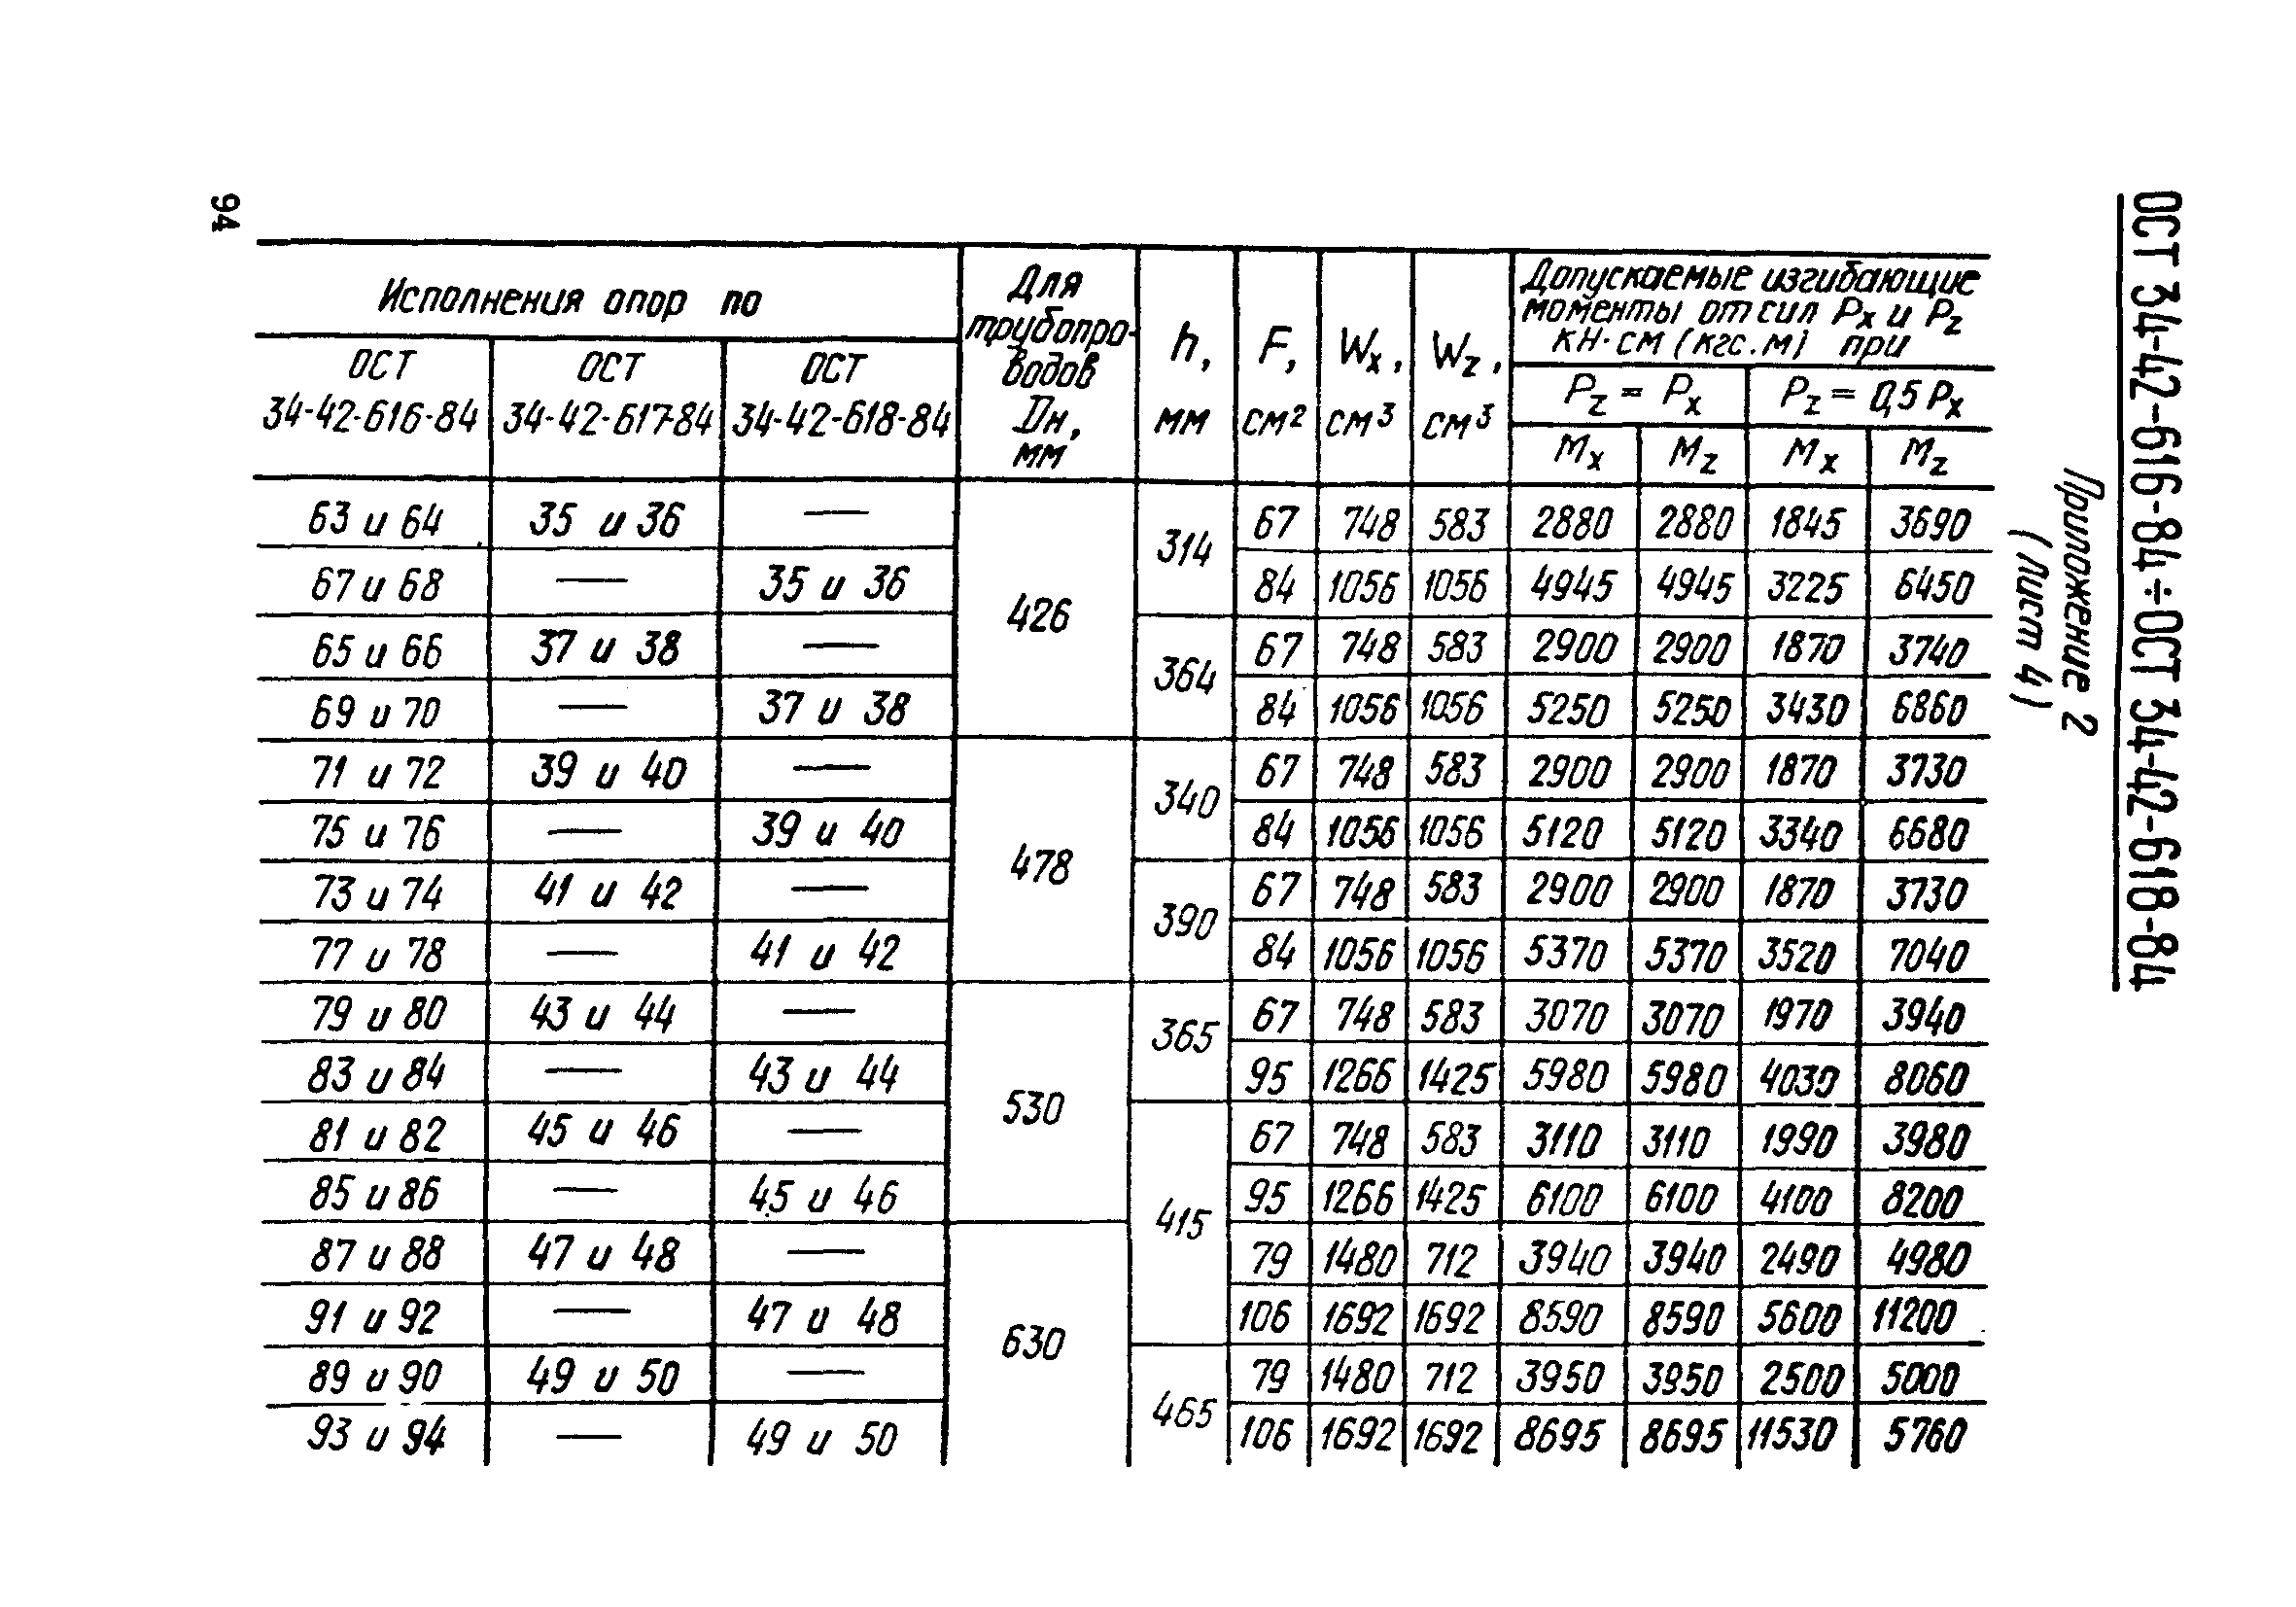 94
ОСТ 34-42-616-84÷ОСТ 34-42-618-84
Приложение 2
(лист 4)
Исполнения опор по
Для трубопро-водов Dн, мм
h, мм
F, см²
Wx, см³
Wz, см³
Допускаемые изгибающие
моменты от сил Px и Pz
кН·см (кгс.м) при
ОСТ 34-42-616-84
ОСТ 34-42-617-84
ОСТ 34-42-618-84
Pz = Px
Pz = 0,5 Px
Mx Mz Mx Mz
63 и 64 35 и 36 — 426 314 67 748 583 2880 2880 1845 3690
67 и 68 — 35 и 36 84 1056 1056 4945 4945 3225 6450
65 и 66 37 и 38 — 364 67 748 583 2900 2900 1870 3740
69 и 70 — 37 и 38 84 1056 1056 5250 5250 3430 6860
71 и 72 39 и 40 — 478 340 67 748 583 2900 2900 1870 3730
75 и 76 — 39 и 40 84 1056 1056 5120 5120 3340 6680
73 и 74 41 и 42 — 390 67 748 583 2900 2900 1870 3730
77 и 78 — 41 и 42 84 1056 1056 5370 5370 3520 7040
79 и 80 43 и 44 — 530 365 67 748 583 3070 3070 1970 3940
83 и 84 — 43 и 44 95 1266 1425 5980 5980 4030 8060
81 и 82 45 и 46 — 415 67 748 583 3110 3110 1990 3980
85 и 86 — 45 и 46 95 1266 1425 6100 6100 4100 8200
87 и 88 47 и 48 — 630 79 1480 712 3940 3940 2490 4980
91 и 92 — 47 и 48 106 1692 1692 8590 8590 5600 11200
89 и 90 49 и 50 — 465 79 1480 712 3950 3950 2500 5000
93 и 94 — 49 и 50 106 1692 1692 8695 8695 11530 5760